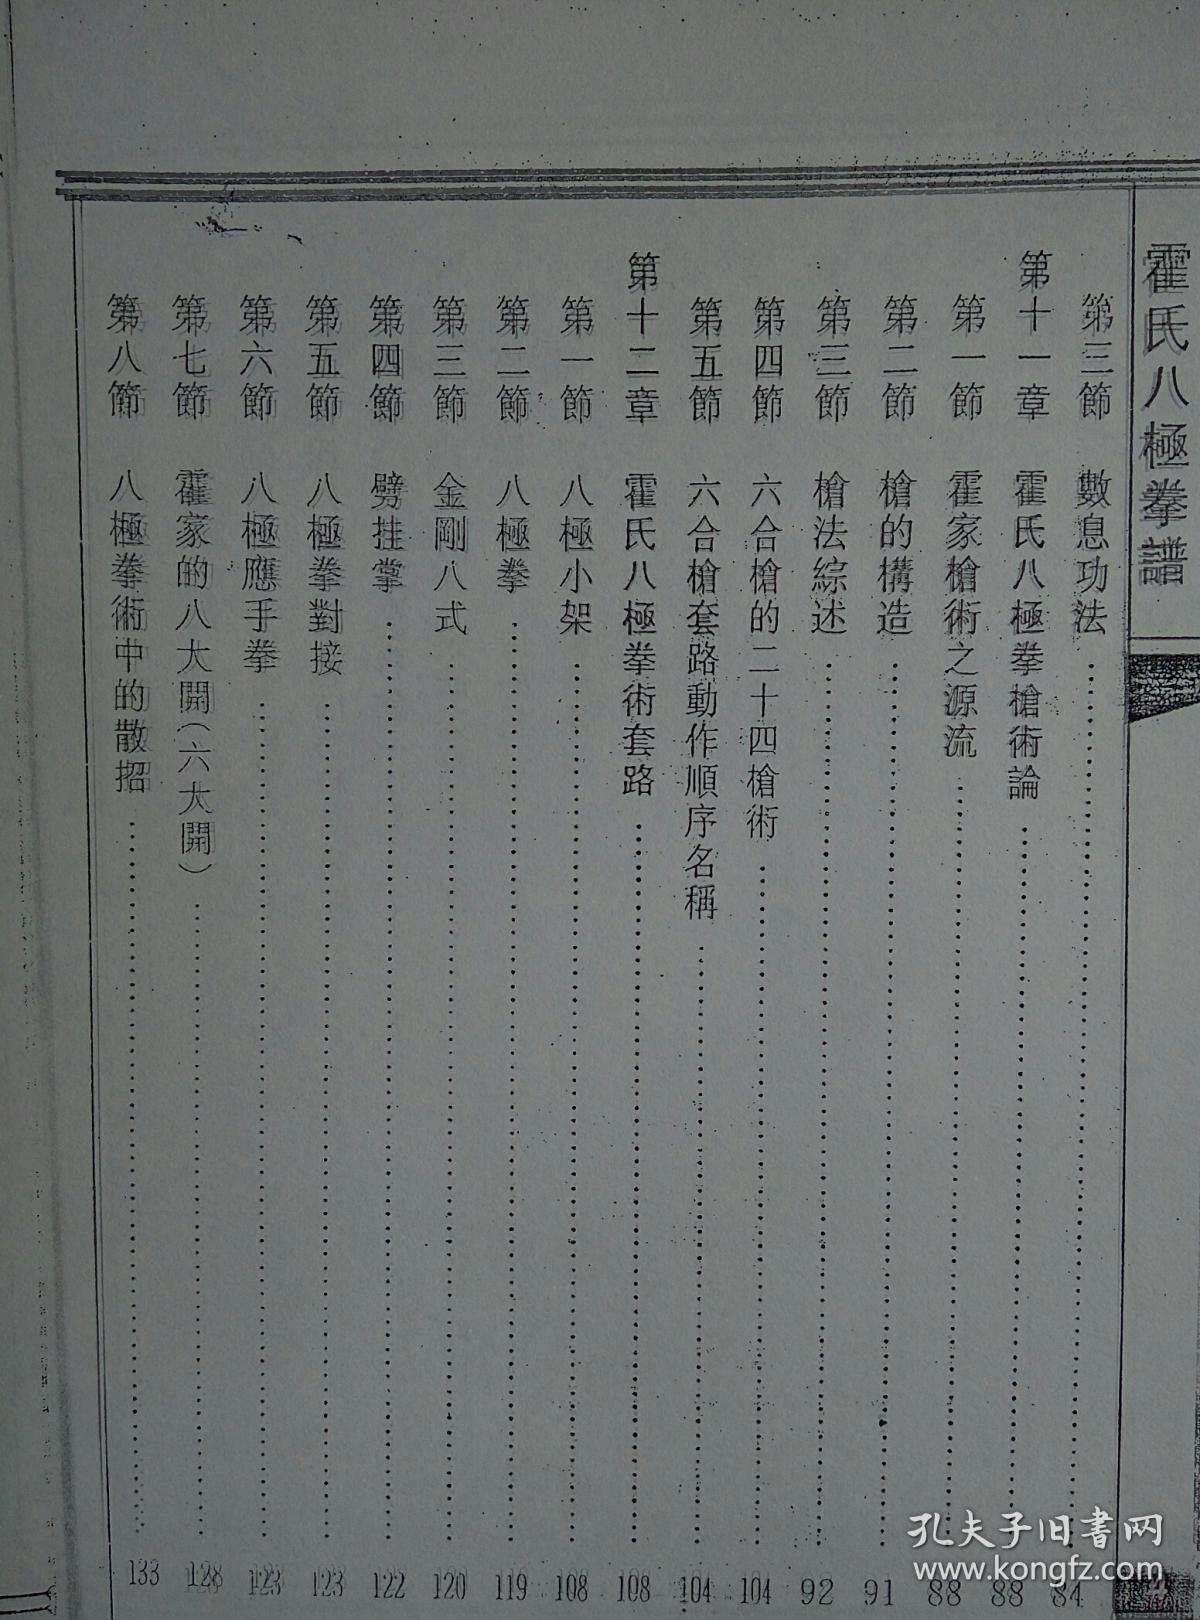 霍氏八極拳譜
第三節 數息功法 84
第十一章 霍氏八極拳槍術論 88
第一節 霍家槍術之源流 88
第二節 槍的構造 91
第三節 槍法綜述 92
第四節 六合槍的二十四槍術 104
第五節 六合槍套路動作順序名稱 104
第十二章 霍氏八極拳術套路 108
第一節 八極小架 108
第二節 八極拳 119
第三節 金剛八式 120
第四節 劈挂掌 122
第五節 八極拳對接 123
第六節 八極應手拳 123
第七節 霍家的八大開(六大開) 128
第八節 八極拳術中的散招 133
孔夫子旧书网
www.kongfz.com